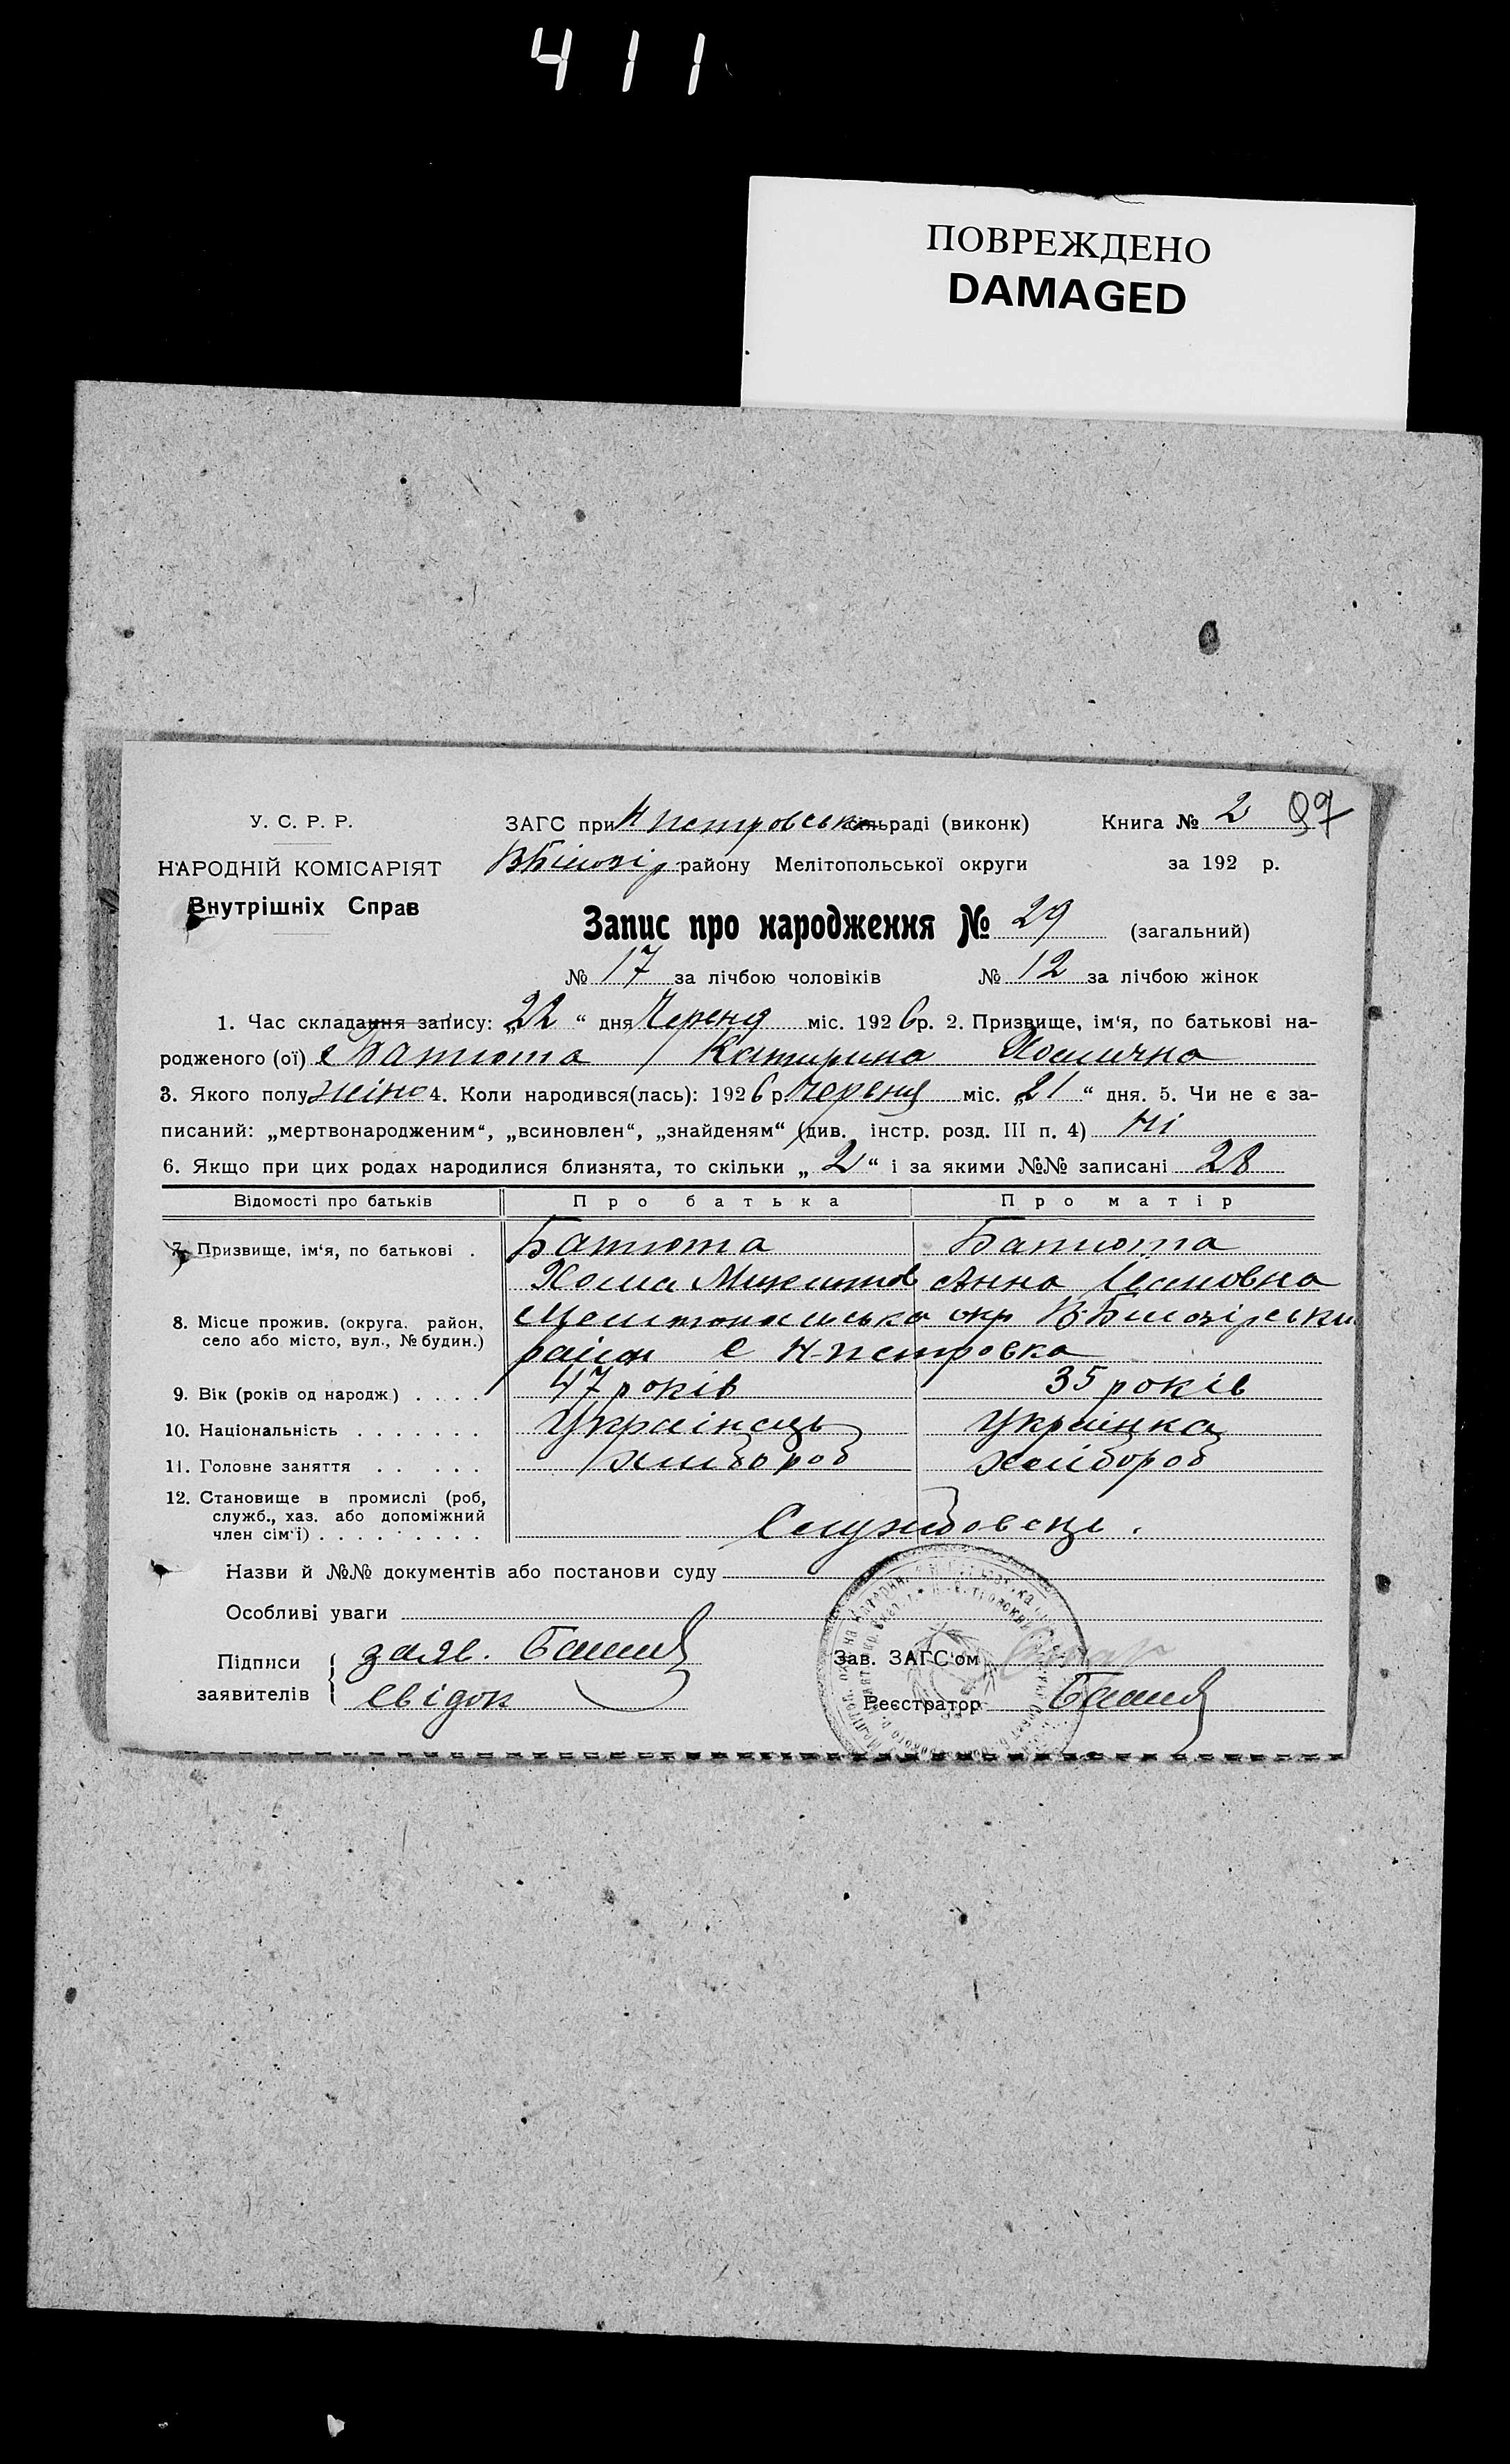 411
ПОВРЕЖДЕНО
DAMAGED
У. С. Р. Р.
НАРОДНІЙ КОМІСАРІЯТ
Внутрішніх Справ
ЗАГС при Н петровськ сільраді (виконк)
Книга № 2 97
ВБілозір району Мелітопольської округи
за 192 р.
Запис про народження № 29 (загальний)
№ 17 за лічбою чоловіків № 12 за лічбою жінок
1. Час складання запису: „22“ дня Червня міс. 1926 р. 2. Призвище, ім'я, по батькові на-
родженого (ої) Батюта Катирина Хомична
3. Якого полу жіно 4. Коли народився(лась): 1926 р. червня міс. „21“ дня. 5. Чи не є за-
писаний: „мертвонародженим“, „всиновлен“, „знайденям“ (див. інстр. розд. III п. 4) Ні
6. Якщо при цих родах народилися близнята, то скільки „2“ і за якими №№ записані 28
Відомості про батьків Про батька Про матір
7. Призвище, ім'я, по батькові . Батюта Батюта
Хома Микитов Анна Івановна
8. Місце прожив. (округа, район, село або місто, вул., № будин.) Мелитопильська окр В-Билозірськи
район с Н-петровка
9. Вік (років од народж) . . . . 47 років 35 років
10. Національність . . . . . . . Українець Українка
11. Головне заняття . . . . . Хлибороб Хлибороб
12. Становище в промислі (роб,
служб., хаз. або допоміжний
член сім'ї) . . . . . . . . .
Назви й №№ документів або постанови суду
Особливі уваги
Підписи
заявителів
заяв.
свідок
Зав. ЗАГС'ом
Реєстратор